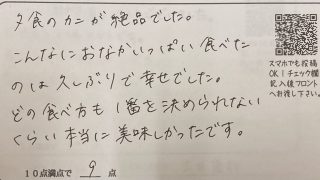 夕食のカニが絶品でした。
こんなにおなかいっぱい食べた
のは久しぶりで幸せでした。
どの食べ方も1番を決められない
くらい本当に美味しかったです。
10点満点で 9 点
スマホでも投稿
OK！チェック欄
記入後フロント
へお渡し下さい。